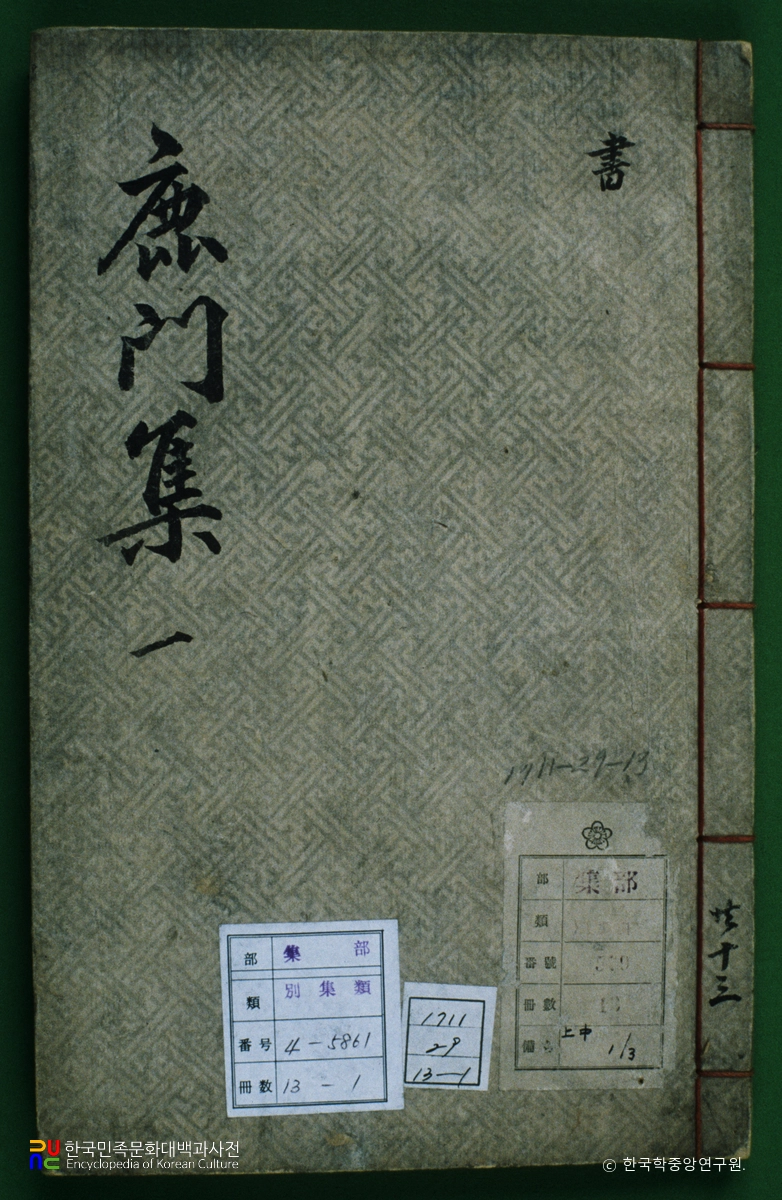 書
鹿門集 一
1711-29-13
共十三
部 集部
類
番號
冊數 13
備考 上中 1/3
部 集部
類 別集類
番号 4-5861
冊数 13-1
1711
29
13-1
한국민족문화대백과사전
Encyclopedia of Korean Culture
ⓒ 한국학중앙연구원.